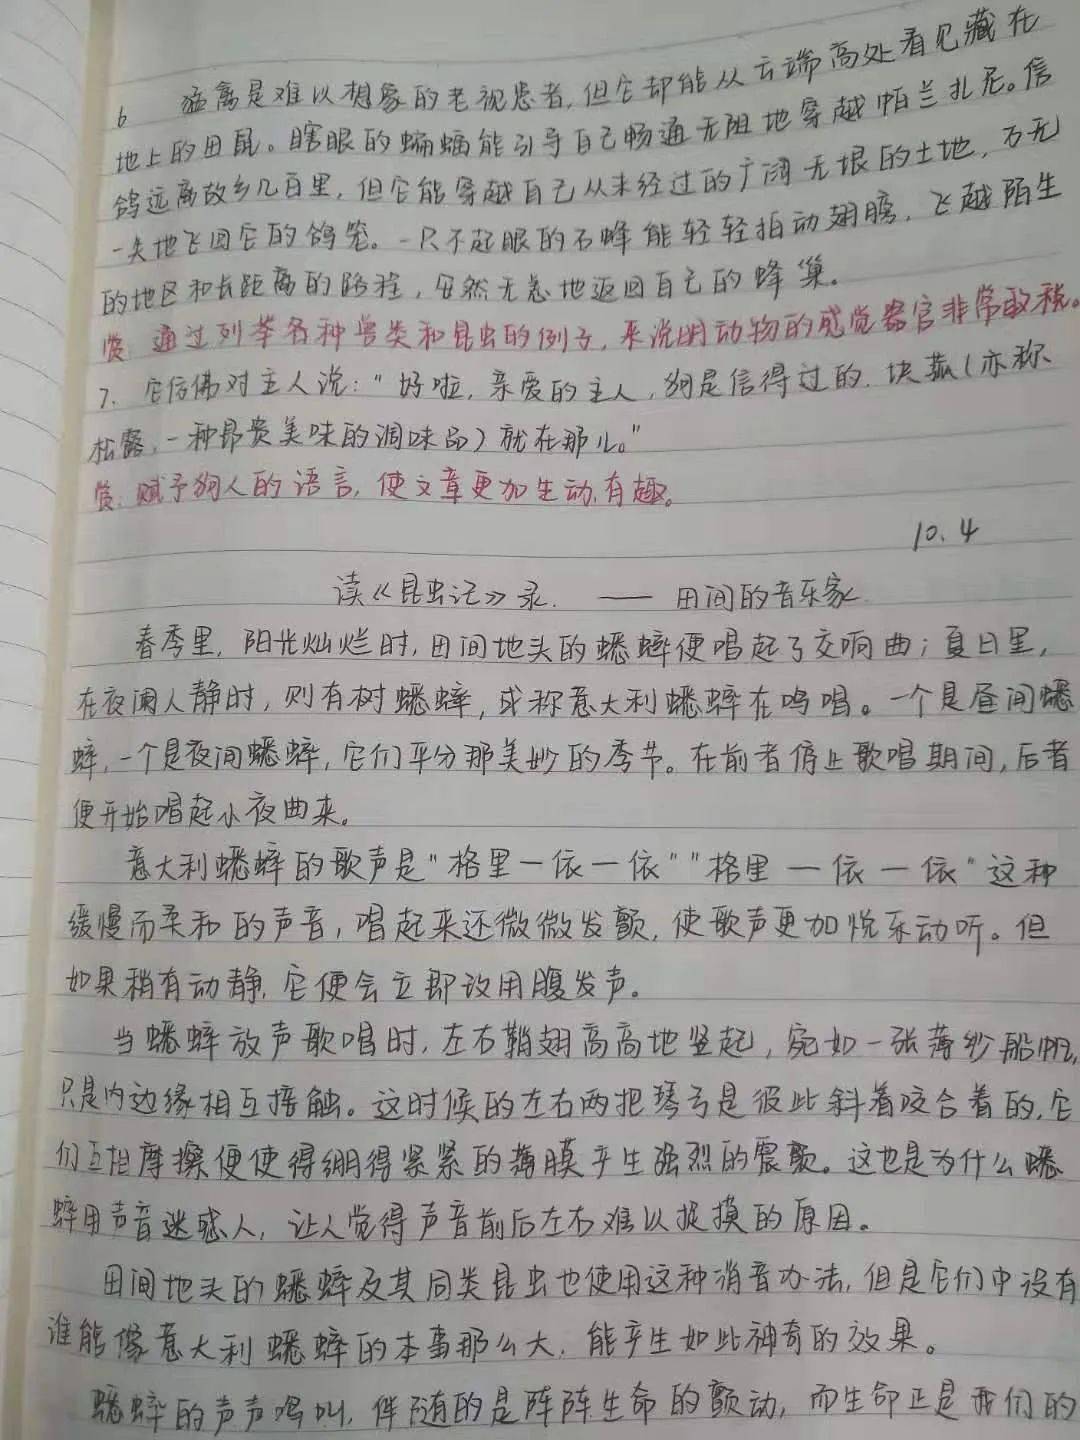 6 猛禽是难以想象的老视患者,但它却能从云端高处看见藏在
地上的田鼠。瞎眼的蝙蝠能引导自己畅通无阻地穿越帕兰扎尼。信
鸽远离故乡几百里,但它能穿越自己从未经过的广阔无垠的土地,万无
一失地飞回它的鸽笼。一只不起眼的石蜂能轻轻拍动翅膀,飞越陌生
的地区和长距离的路程,安然无恙地返回自己的蜂巢。
赏 通过列举各种兽类和昆虫的例子,来说明动物的感觉器官非常敏锐。
7. 它仿佛对主人说:"好啦,亲爱的主人,狗是信得过的,块菰(亦称
松露,一种昂贵美味的调味品)就在那儿。"
赏:赋予狗人的语言,使文章更加生动,有趣。
10.4
读《昆虫记》录. —— 田间的音乐家
春季里,阳光灿烂时,田间地头的蟋蟀便唱起了交响曲;夏日里,
在夜阑人静时,则有树蟋蟀,或称意大利蟋蟀在鸣唱。一个是昼间蟋
蟀,一个是夜间蟋蟀,它们平分那美妙的季节。在前者停止歌唱期间,后者
便开始唱起小夜曲来。
意大利蟋蟀的歌声是"格里一依一依""格里一依一依"这种
缓慢而柔和的声音,唱起来还微微发颤,使歌声更加悦乐动听。但
如果稍有动静,它便会立即改用腹发声。
当蟋蟀放声歌唱时,左右鞘翅高高地竖起,宛如一张薄纱船帆,
只是内边缘相互接触。这时候的左右两把琴弓是彼此斜着咬合着的,它
们互相摩擦便使得绷得紧紧的薄膜产生强烈的震颤。这也是为什么蟋
蟀用声音迷惑人,让人觉得声音前后左右难以捉摸的原因。
田间地头的蟋蟀及其同类昆虫也使用这种消音办法,但是它们中没有
谁能像意大利蟋蟀的本事那么大,能产生如此神奇的效果。
蟋蟀的声声鸣叫,伴随的是阵阵生命的颤动,而生命正是我们的